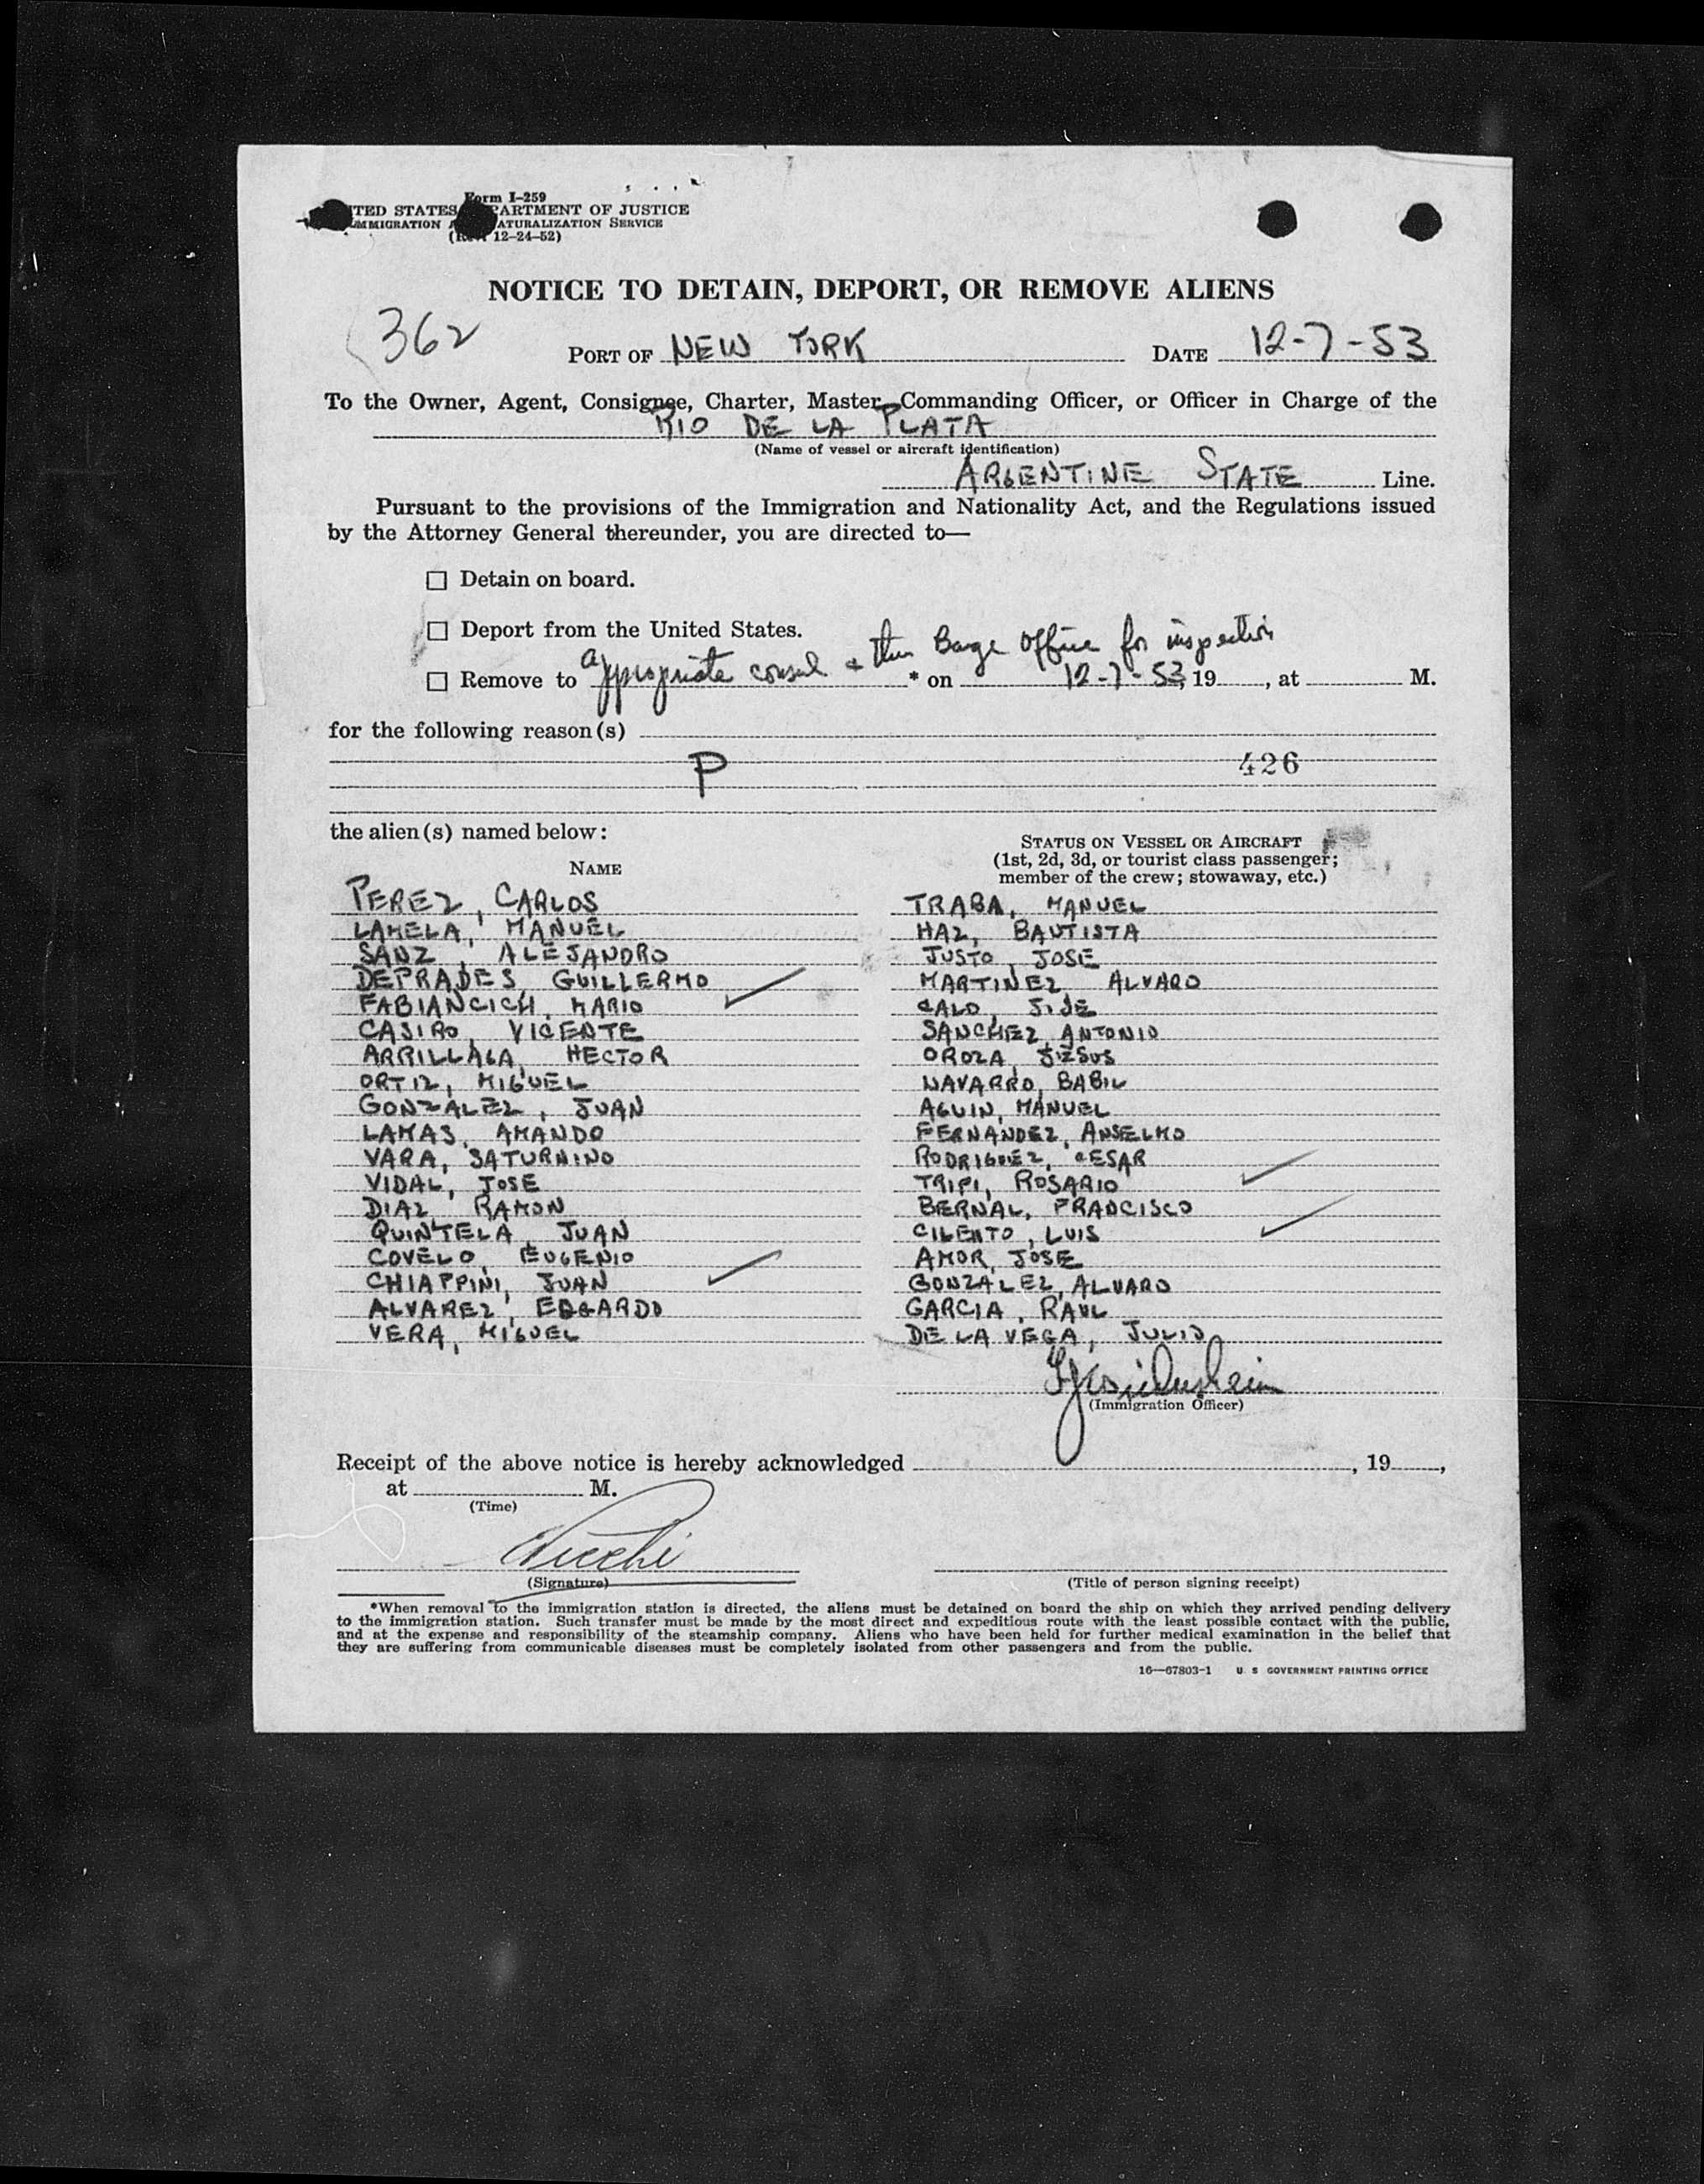 Form I-259
UNITED STATES DEPARTMENT OF JUSTICE
IMMIGRATION AND NATURALIZATION SERVICE
(Rev. 12-24-52)
NOTICE TO DETAIN, DEPORT, OR REMOVE ALIENS
362
PORT OF NEW YORK DATE 12-7-53
To the Owner, Agent, Consignee, Charter, Master, Commanding Officer, or Officer in Charge of the
RIO DE LA PLATA
(Name of vessel or aircraft identification)
ARGENTINE STATE Line.
Pursuant to the provisions of the Immigration and Nationality Act, and the Regulations issued
by the Attorney General thereunder, you are directed to—
☐ Detain on board.
☐ Deport from the United States.
☐ Remove to appropriate consul & then Barge Office for inspection * on 12-7-53, 19 , at M.
for the following reason(s)
P 426
the alien(s) named below:
NAME
STATUS ON VESSEL OR AIRCRAFT
(1st, 2d, 3d, or tourist class passenger;
member of the crew; stowaway, etc.)
PEREZ, CARLOS TRABA, MANUEL
LAMELA, MANUEL HAZ, BAUTISTA
SANZ, ALEJANDRO JUSTO, JOSE
DEPRADES, GUILLERMO MARTINEZ ALVARO
FABIANCICH, MARIO ✓ CALO, JOSE
CASIRO, VICENTE SANCHEZ, ANTONIO
ARRILLAGA, HECTOR OROZA, JESUS
ORTIZ, MIGUEL NAVARRO, BABIL
GONZALEZ, JUAN AGUIN, MANUEL
LAMAS, AMANDO FERNANDEZ, ANSELMO
VARA, SATURNINO RODRIGUEZ, CESAR
VIDAL, JOSE TRIPI, ROSARIO ✓
DIAZ RAMON BERNAL, FRANCISCO
QUINTELA, JUAN CILENTO, LUIS ✓
COVELO, EUGENIO AMOR, JOSE
CHIAPPINI, JUAN ✓ GONZALEZ, ALVARO
ALVAREZ, EDGARDO GARCIA, RAUL
VERA, MIGUEL DE LA VEGA, JULIO
(Immigration Officer)
Receipt of the above notice is hereby acknowledged , 19 ,
at M.
(Time)
(Signature) (Title of person signing receipt)
*When removal to the immigration station is directed, the aliens must be detained on board the ship on which they arrived pending delivery
to the immigration station. Such transfer must be made by the most direct and expeditious route with the least possible contact with the public,
and at the expense and responsibility of the steamship company. Aliens who have been held for further medical examination in the belief that
they are suffering from communicable diseases must be completely isolated from other passengers and from the public.
16—67803-1 U. S. GOVERNMENT PRINTING OFFICE